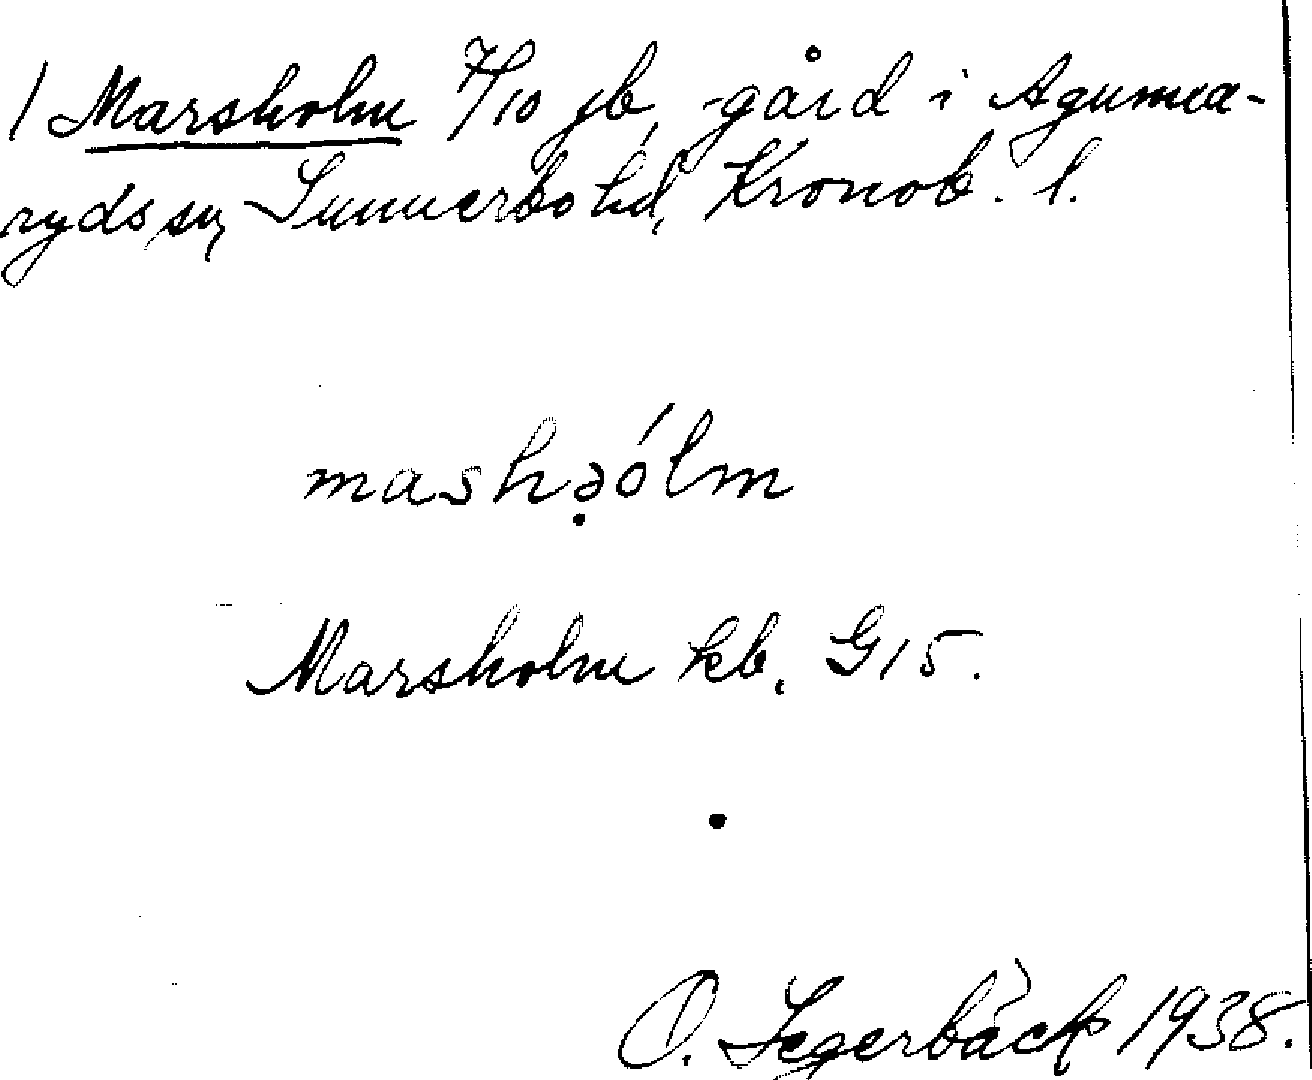 / Marsholm 7/10 jb, gård i Agunna-
ryds sn, Sunnerbo hd, Kronob. l.
mashəólm
Marsholm kb. G15.
O. Segerbäck 1938.